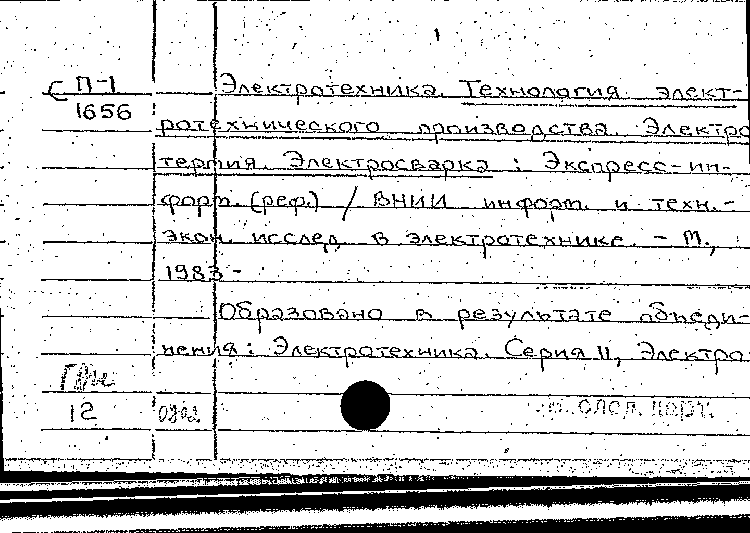 С П-1 Электротехника. Технология элект-
1656
ротехнического производства. Электро
термия. Электросварка : Экспресс-ин-
форм. (реф.) / ВНИИ информ. и техн.-
экон. исслед. в электротехнике. - М.,
1983 -
Образовано в результате объеди-
нения: Электротехника. Серия 11, Электро
12 0202 см. след. карт.